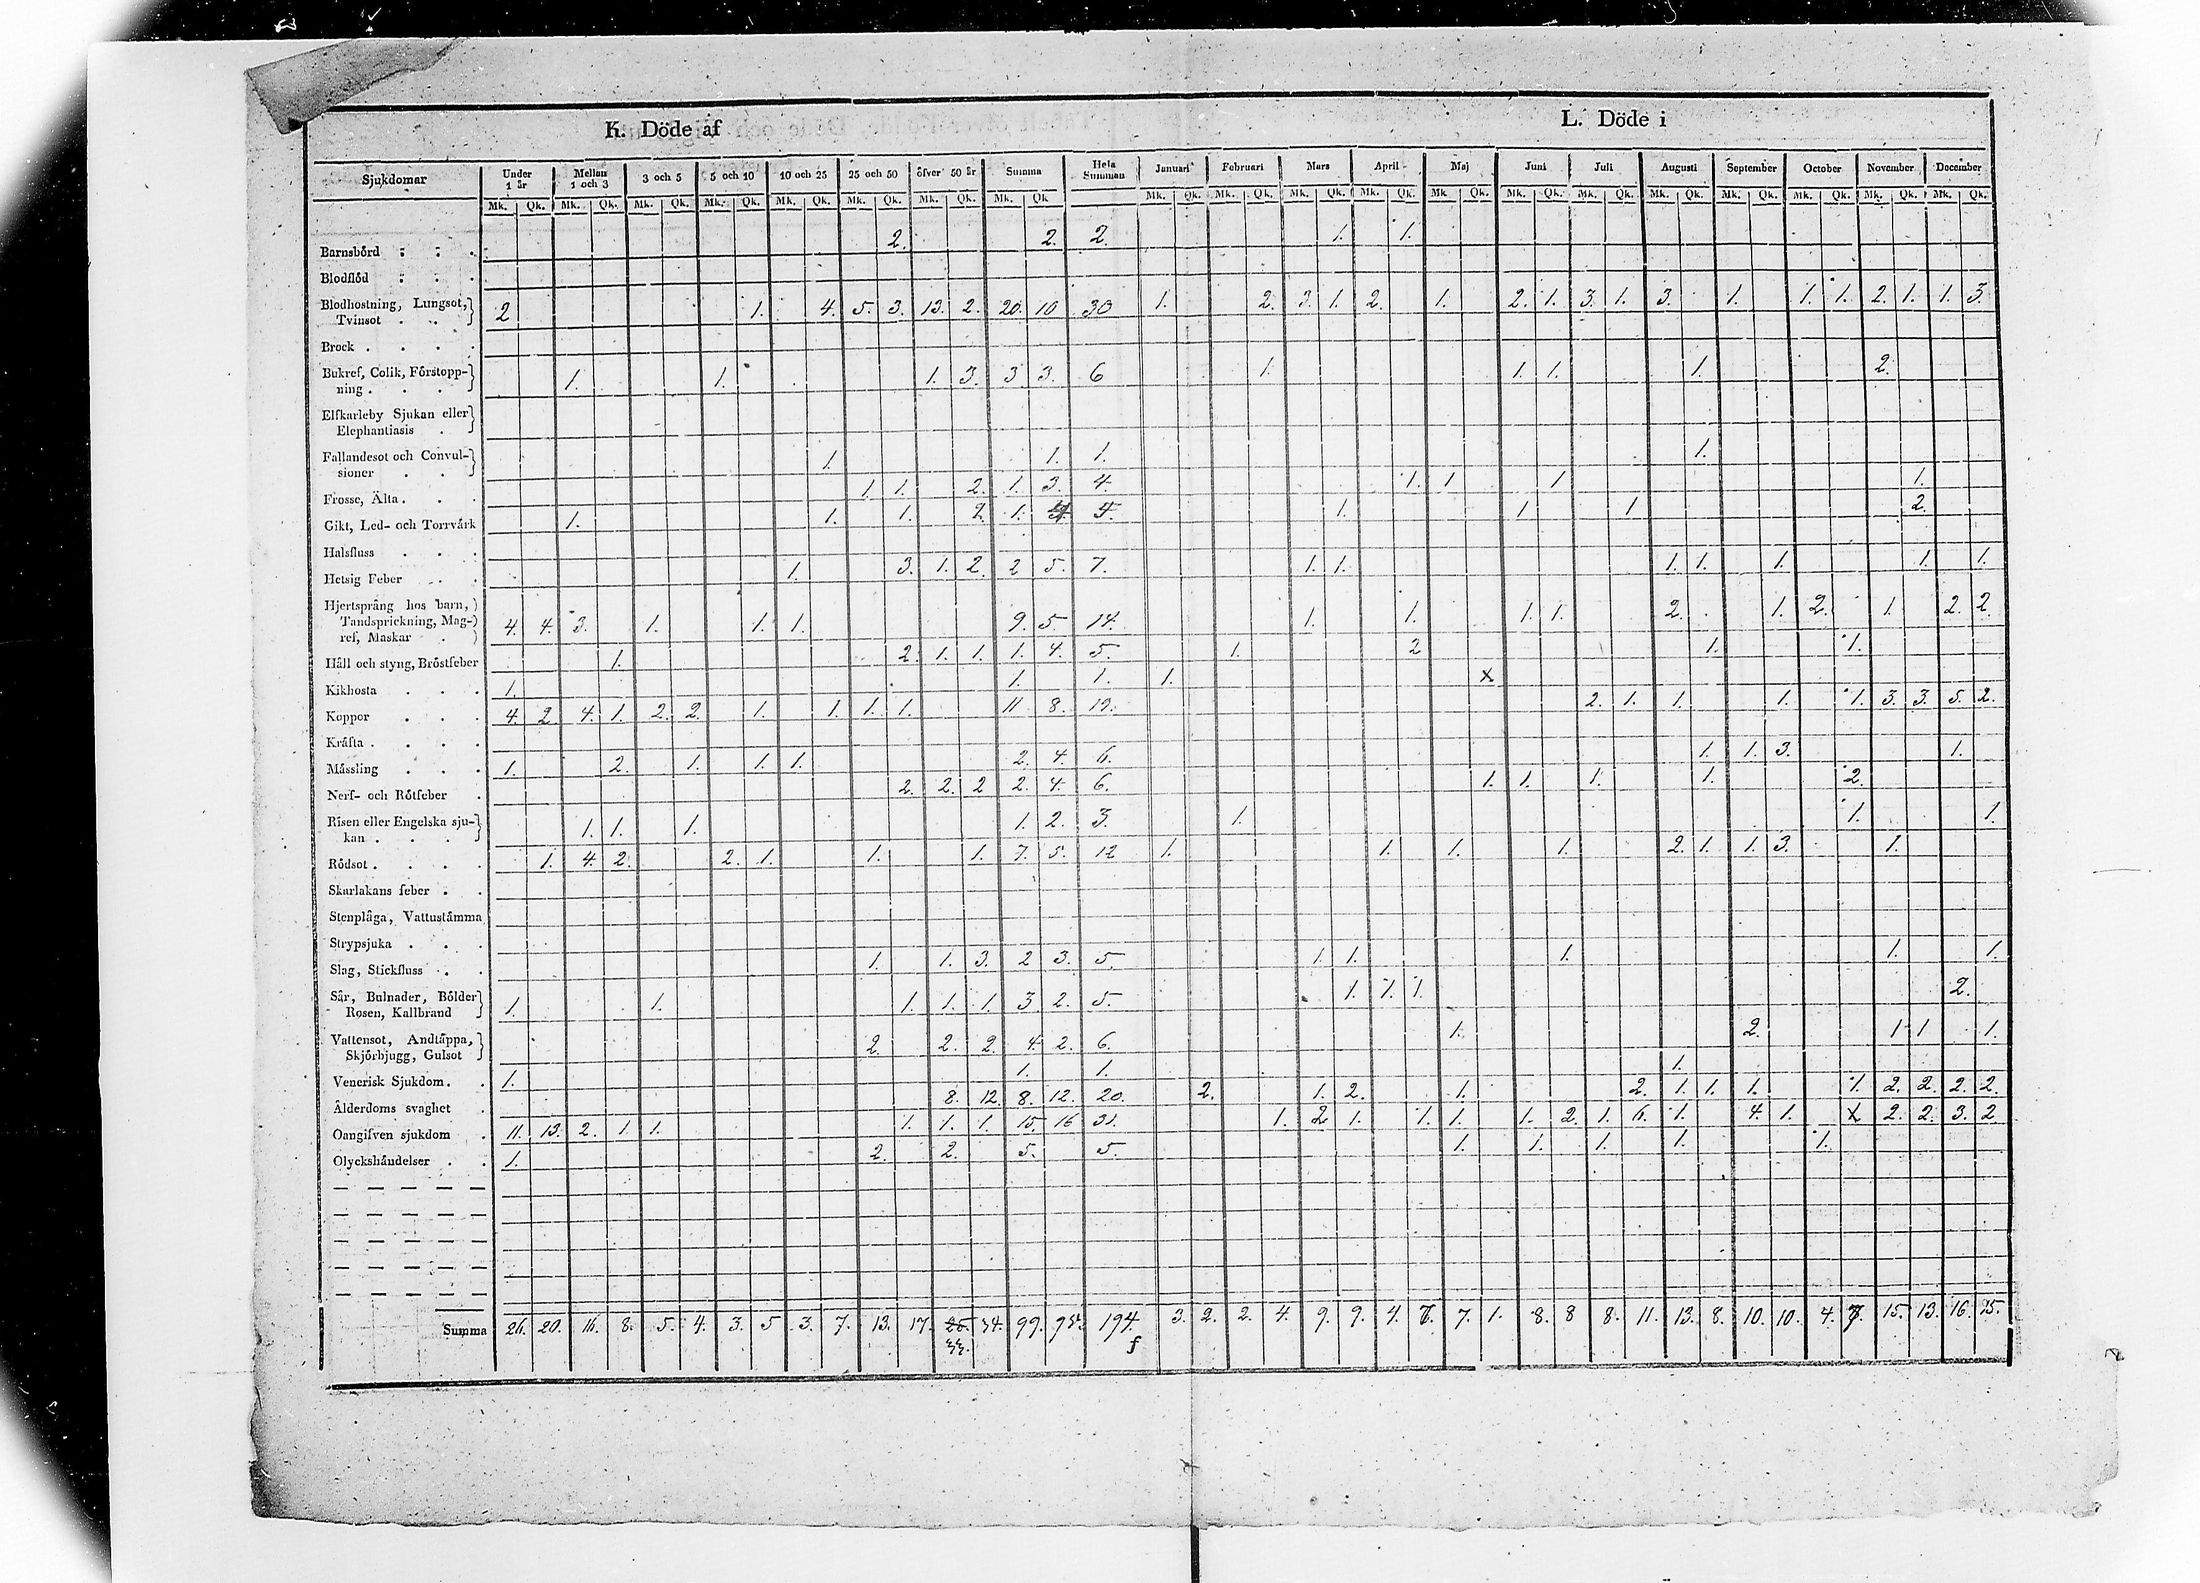 K. Döde af L. Döde i
Sjukdomar Under 1 år Mellan 1 och 3 3 och 5 5 och 10 10 och 25 25 och 50 öfver 50 år Summa Hela Summan Januari Februari Mars April Maj Juni Juli Augusti September October November December
Mk. Qk. Mk. Qk. Mk. Qk. Mk. Qk. Mk. Qk. Mk. Qk. Mk. Qk. Mk. Qk Mk. Qk. Mk. Qk. Mk. Qk. Mk. Qk. Mk. Qk. Mk. Qk. Mk. Qk. Mk. Qk. Mk. Qk. Mk. Qk. Mk. Qk. Mk. Qk.
Barnsbörd 2. 2. 2. 1. 1.
Blodflöd
Blodhostning, Lungsot,
Tvinsot 2 1. 4. 5. 3. 13. 2. 20. 10 30 1. 2. 3. 1. 2. 1. 2. 1. 3. 1. 3. 1. 1. 1. 2. 1. 1. 3.
Brock
Bukref, Colik, Förstopp-
ning 1. 1. 1. 3. 3 3. 6 1. 1. 1. 1. 2.
Elfkarleby Sjukan eller
Elephantiasis
Fallandesot och Convul-
sioner 1. 1. 1. 1.
Frosse, Älta 1. 1. 2. 1. 3. 4. 1. 1 1. 1.
Gikt, Led- och Torrvärk 1. 1. 1. 2. 1. 1. 1. 1 2.
Halsfluss
Hetsig Feber 1. 3. 1. 2. 2 5. 7. 1. 1. 1. 1. 1. 1. 1.
Hjertsprång hos barn,
Tandsprickning, Mag-
ref, Maskar 4. 4. 3. 1. 1. 1. 9. 5 14. 1. 1. 1. 1. 2. 1. 2. 1. 2. 2.
Håll och styng, Bröstfeber 1. 2. 1. 1. 1. 4. 5. 1. 2 1. 1.
Kikhosta 1. 1. 1. 1. x
Koppor 4. 2. 4. 1. 2. 2. 1. 1. 1. 1. 11 8. 19. 2. 1. 1. 1. 1. 3. 3. 5. 2.
Kräfta
Mässling 1. 2. 1. 1. 1. 2. 4. 6. 1. 1. 3. 1.
Nerf- och Rötfeber 2. 2. 2 2. 4. 6. 1. 1. 1. 1. 2.
Risen eller Engelska sju-
kan 1. 1. 1. 1. 2. 3. 1. 1. 1.
Rödsot 1. 4. 2. 2. 1. 1. 1. 7. 5. 12 1. 1. 1. 1. 2. 1. 1. 3. 1.
Skarlakans feber
Stenplåga, Vattustämma
Strypsjuka
Slag, Stickfluss 1. 1. 3. 2 3. 5. 1. 1. 1. 1. 1.
Sår, Bulnader, Bölder
Rosen, Kallbrand 1. 1. 1. 1. 1. 3 2. 5. 1. 1. 1. 2.
Vattensot, Andtäppa,
Skjörbjugg, Gulsot 2. 2. 2. 4. 2. 6. 1. 2. 1 1 1.
Venerisk Sjukdom 1. 1. 1. 1.
Ålderdoms svaghet 8. 12. 8. 12. 20. 2. 1. 2. 1. 2. 1. 1. 1. 1. 2. 2. 2. 2.
Oangifven sjukdom 11. 13. 2. 1. 1. 1. 1. 1. 15. 16 31. 1. 2 1. 1. 1. 1. 2. 1. 6. 1. 4. 1. x 2. 2. 3. 2.
Olyckshändelser 1. 2. 2. 5. 5. 1. 1. 1. 1. 1.
Summa 26. 20. 16. 8. 5. 4. 3. 5 3. 7. 13. 17. 34. 99. 194. 3. 2. 2. 4. 9. 9. 4. 7. 1. 8. 8 8. 11. 13. 8. 10. 10. 4. 15. 13. 16. 25.
33.